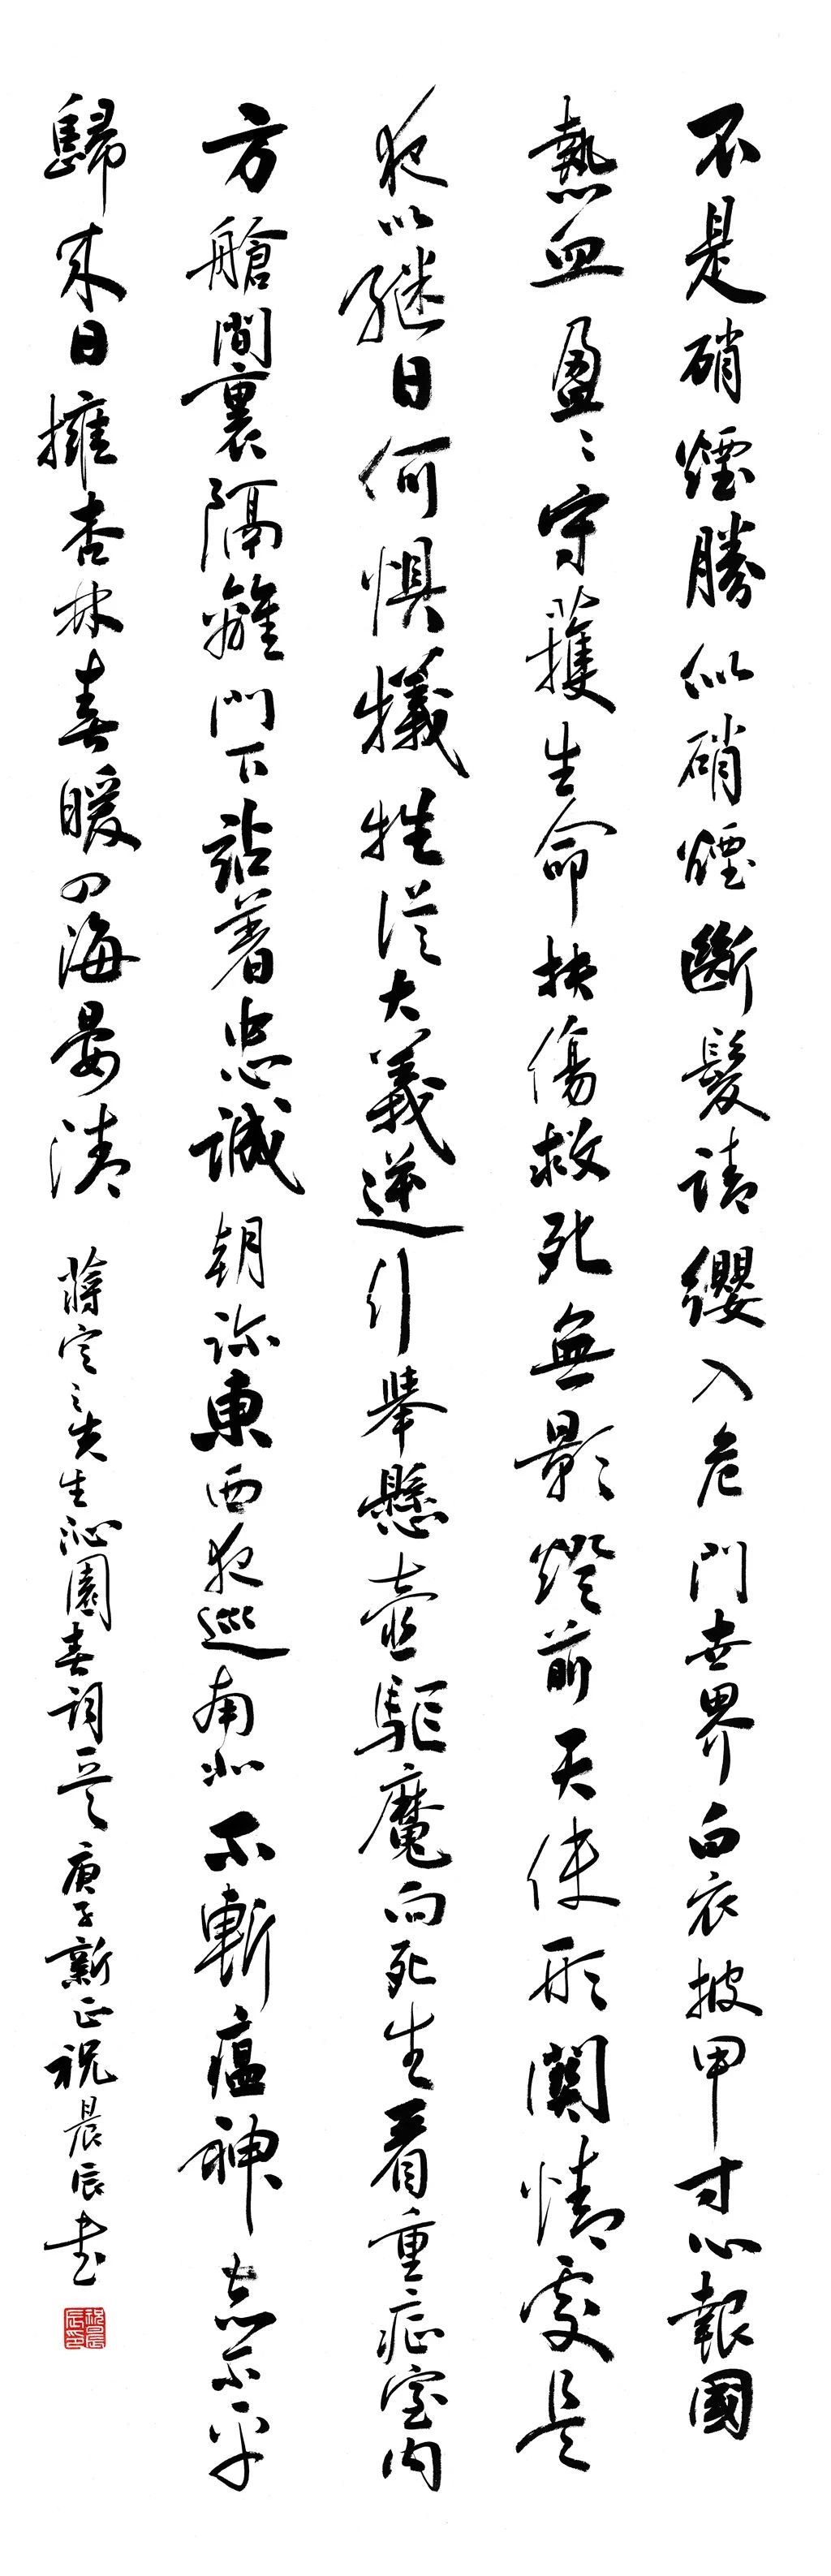 不是硝煙勝似硝煙斷髮請纓入危門世界白衣披甲寸心報國
熱血盈〻守護生命扶傷救死無影燈前天使形關情處是
夜以繼日何懼犧牲從大義逆行舉懸壺驅魔向死生看重症室內
方艙間裏隔離門下站着忠誠朝巡東西夜巡南北不斬瘟神志不平
歸來日擁杏林春暖四海晏清
蔣定之先生沁園春詞一是庚子新正祝晨辰書
祝晨辰印